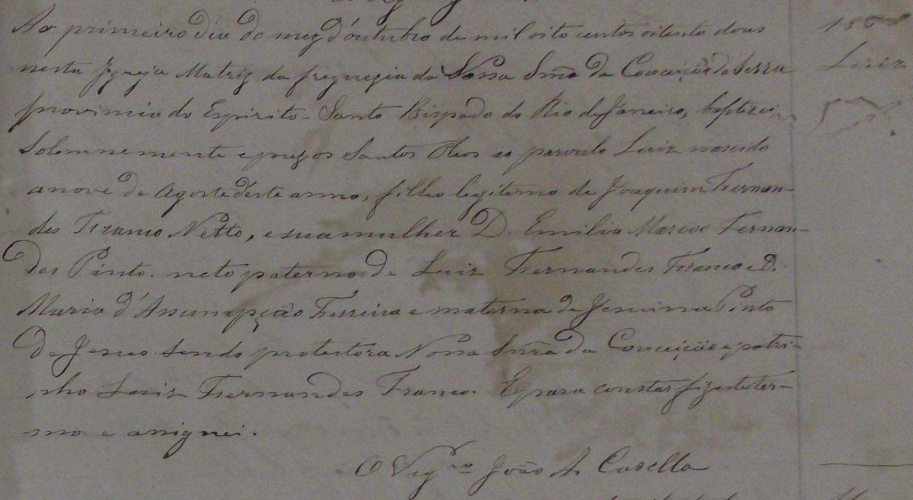 Ao primeiro dia do mez d'outubro de mil oito centos oitenta dous
nesta Igreja Matriz da freguezia da Nossa Snra da Conceição da Serra
provincia do Espirito-Santo Bispado do Rio de Janeiro, baptizei
Solemnemente e puz os Santos Oleos ao parvulo Luiz nascido
a nove de Agosto deste anno, filho legitimo de Joaquim Fernan-
des Franco Netto, e sua mulher D. Emilia Fernan-
des Pinto. neto paterno de Luiz Fernandes Franco e D.
Maria d'Assumpção Ferreira e materna de Jesuina Pinto
De Jesus sendo protectora Nossa Snra da Conceição e padri-
nho Luiz Fernandes Franco. E para constar fiz este ter-
mo e assignei.
O Vigro João A. Casella
Luiz